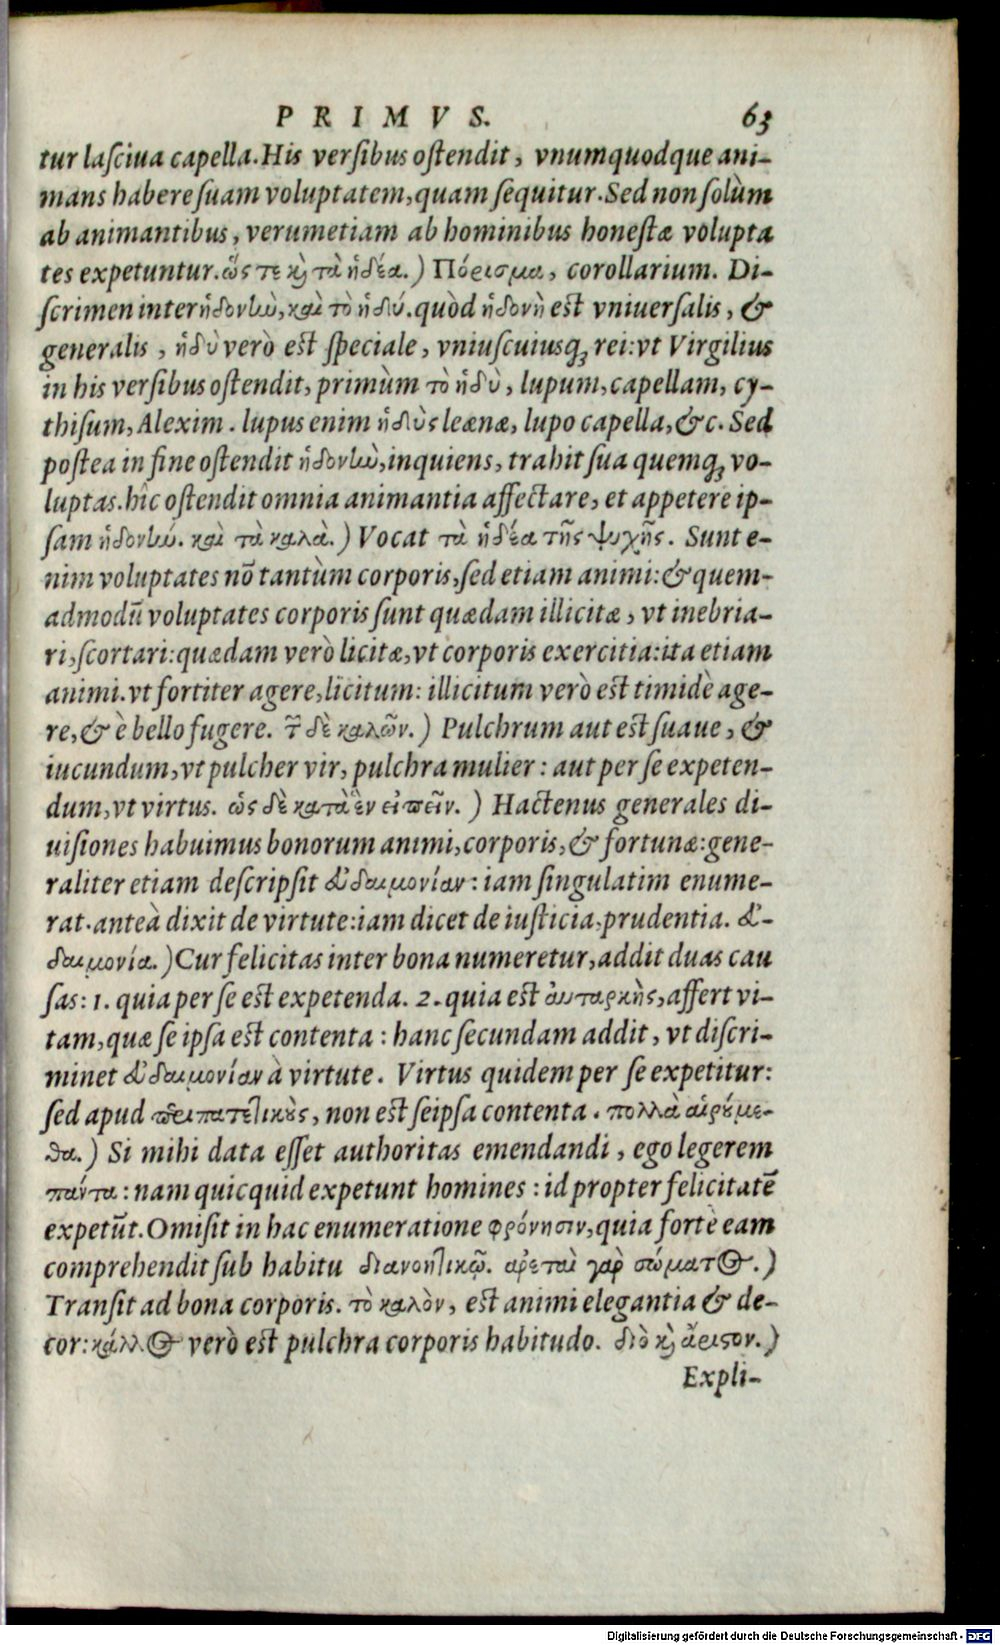 PRIMVS. 63
tur lasciua capella. His versibus ostendit, vnumquodque ani-
mans habere suam voluptatem, quam sequitur. Sed non solùm
ab animantibus, verumetiam ab hominibus honestæ volupta
tes expetuntur. ὥς τε καὶ τὰ ἡδέα.) Πόρισμα, corollarium. Di-
scrimen inter ἡδονὴν, καὶ τὸ ἡδύ. quòd ἡδονὴ est vniuersalis, &
generalis, ἡδὺ verò est speciale, vniuscuiusq́; rei: vt Virgilius
in his versibus ostendit, primùm τὸ ἡδὺ, lupum, capellam, cy-
thisum, Alexim. lupus enim ἡδὺς leænæ, lupo capella, &c. Sed
postea in fine ostendit ἡδονὴν, inquiens, trahit sua quemq́; vo-
luptas. hîc ostendit omnia animantia affectare, et appetere ip-
sam ἡδονήν. καὶ τὰ καλὰ.) Vocat τὰ ἡδέα τῆς ψυχῆς. Sunt e-
nim voluptates nõ tantùm corporis, sed etiam animi: & quem-
admodũ voluptates corporis sunt quædam illicitæ, vt inebria-
ri, scortari: quædam verò licitæ, vt corporis exercitia: ita etiam
animi. vt fortiter agere, licitum: illicitum verò est timidè age-
re, & è bello fugere. τῶν δὲ καλῶν.) Pulchrum aut est suaue, &
iucundum, vt pulcher vir, pulchra mulier: aut per se expeten-
dum, vt virtus. ὡς δὲ κατὰ ἓν εἰπεῖν.) Hactenus generales di-
uisiones habuimus bonorum animi, corporis, & fortunæ: gene-
raliter etiam descripsit εὐδαιμονίαν: iam singulatim enume-
rat. anteà dixit de virtute: iam dicet de iusticia, prudentia. εὐ-
δαιμονία.) Cur felicitas inter bona numeretur, addit duas cau
sas: 1. quia per se est expetenda. 2. quia est αὐταρκὴς, affert vi-
tam, quæ se ipsa est contenta: hanc secundam addit, vt discri-
minet εὐδαιμονίαν à virtute. Virtus quidem per se expetitur:
sed apud περιπατετικοὺς, non est seipsa contenta. πολλὰ αἱρούμε-
θα.) Si mihi data esset authoritas emendandi, ego legerem
πάντα: nam quicquid expetunt homines: id propter felicitatẽ
expetũt. Omisit in hac enumeratione φρόνησιν, quia fortè eam
comprehendit sub habitu διανοητικῷ. ἀρεταὶ γὰρ σώματος.)
Transit ad bona corporis. τὸ καλὸν, est animi elegantia & de-
cor: κάλλος verò est pulchra corporis habitudo. διὸ καὶ ἄριστον.)
Expli-
Digitalisierung gefördert durch die Deutsche Forschungsgemeinschaft - DFG